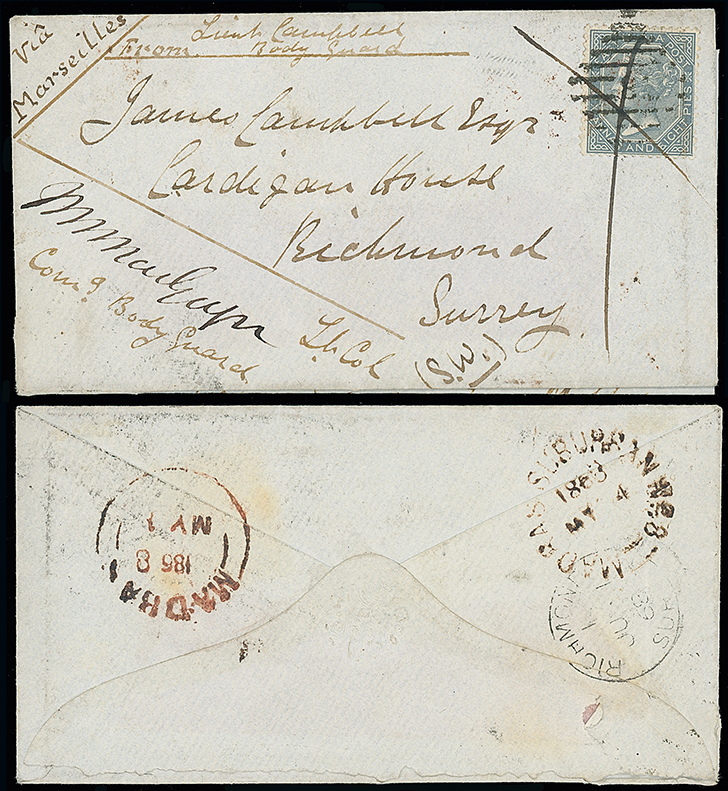 Via
Marseilles
From Lieut Campbell
Body Guard
James Campbell Esqr
Cardigan House
Richmond
Surrey
(S.W.)
Comg
Body Guard
Lt Col
A POST
AND EIGHT PIES
MADRAS
MY
1868
MADRAS SUBURBAN No 3
1868
MY 4
RICHMOND
JU
68
SUR